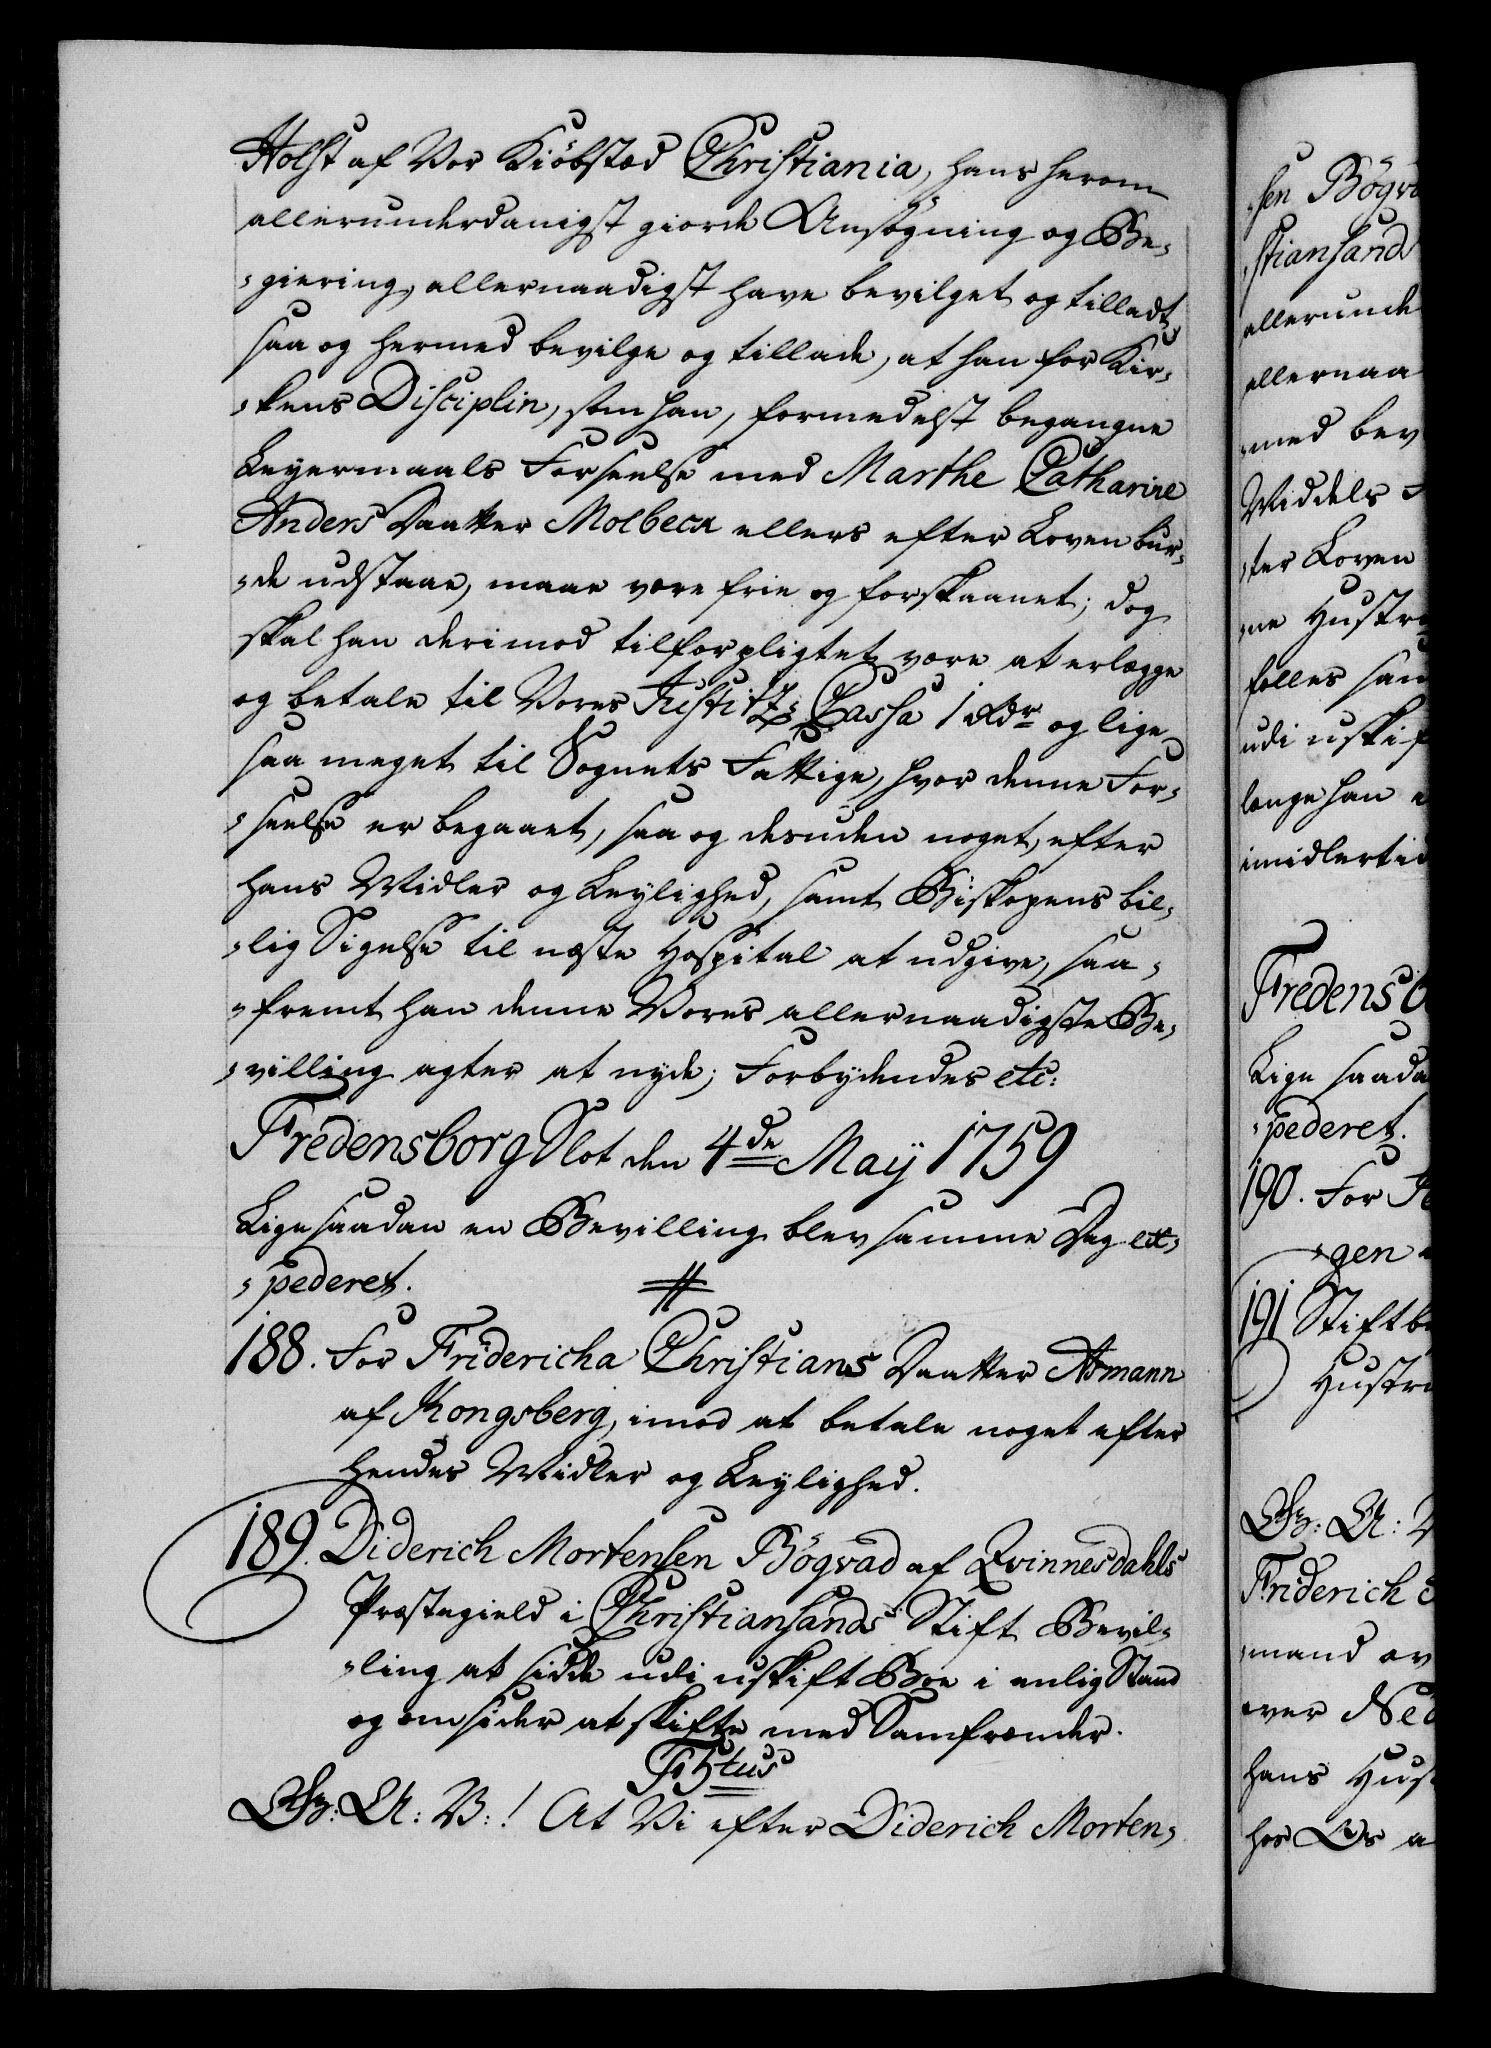 Holst af Vor Kiöbstæd Christiania, hans herom
allerunderdanigst giorde Ansøgning og Be-
-giering, allernaadigst have bevilget og tilladt
saa og hermed bevilge og tillade, at han for Kir-
-kens Disciplin, som han, formedelst begangne
Leyermaals Forseelse med Marthe Catharine
Anders Daatter Molbeck ellers efter Loven bur-
-de udstaae, maae være frie og forskaanet; dog
skal han derimod tilforpligtet være at erlægge
og betale til Vores Justitz-Cassa 1 Rdr og lige
saa meget til Sognets Fattige, hvor denne For-
-seelse er begaaet, saa og desuden noget, efter
hans Midler og Leylighed, samt Biskopens bil-
-lig Sigelse til næste Hospital at udgive, saa-
-fremt han denne Vores allernaadigste Be-
-villing agter at nyde; Forbydendes etc:
Fredensborg Slot den 4de Maÿ 1759
Lige saadan en Bevilling blev samme Dag ex-
-pederet.
188. For Fridericha Christians Daatter Asmann
af Kongsberg, imod at betale noget efter
hendes Midler og Leylighed.
189. Diderich Mortensen Bögvad af Qvinnesdahls
Præstegield i Christiansands Stift Bevil-
-ling at sidde udi uskift Boe i enlig Stand
og omsider at skifte med Samfrænder.
F 5tus
Gr: A: V:! At Vi efter Diderich Morten-
-sen Bögv
-stiansands
allerunde
allernaa
-med bev
Middels
-ter Loven
-ne Hustr
fælles
udi uskif
længe han
imidlertid
Fredensb
Lige saada
-pederet.
190. For
-gen
191 Stiftb
Hustr
Gr: A: V
Friderich
-mand
over Ned
hans Hus
hos Os a